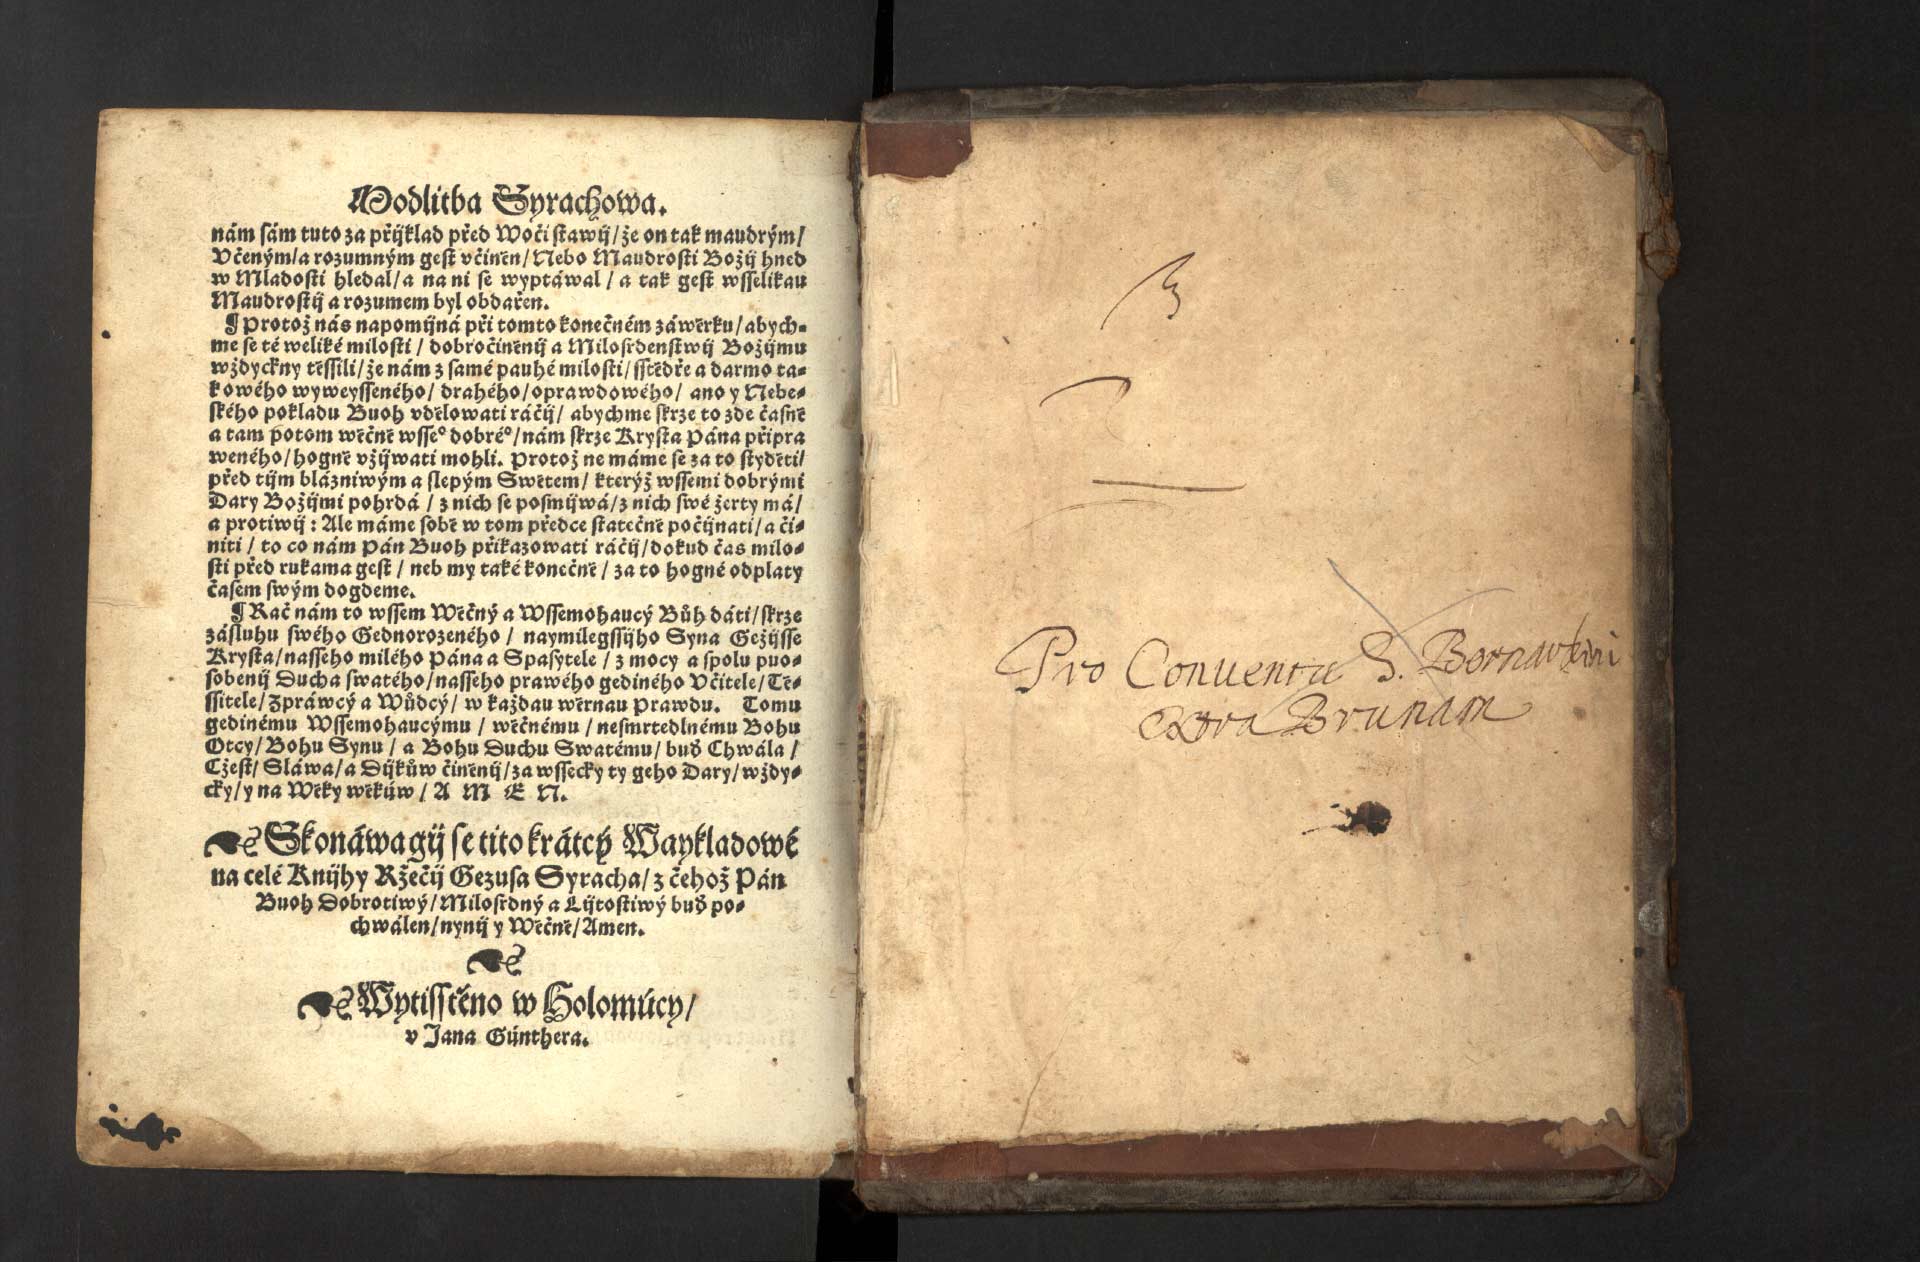 Modlitba Syrachowa.
nám sám tuto za přijklad před Woči stawij / že on tak maudrým /
Včeným / a rozumným gest včiněn / Nebo Maudrosti Božij hned
w Mladosti hledal / a na ni se wyptáwal / a tak gest wsselikau
Maudrostij a rozumem byl obdařen.
¶ Protož nás napomijná při tomto konečném záwěrku / abych-
me se té weliké milosti / dobročiněnij a Milosrdenstwij Božijmu
wždyckny těssili / že nám z samé pauhé milosti / sstědře a darmo ta-
kowého wyweysseného / drahého / oprawdowého / ano y Nebe-
ského pokladu Buoh vdělowati ráčij / abychme skrze to zde časně
a tam potom wěčně wsseº dobréº / nám skrze Krysta Pána připra
weného / hogně vžijwati mohli. Protož ne máme se za to styděti /
před tijm blázniwým a slepým Swětem / kterýž wssemi dobrými
Dary Božijmi pohrdá / z nich se posmijwá / z nich swé žerty má /
a protiwij : Ale máme sobě w tom předce statečně počijnati / a či-
niti / to co nám Pán Buoh přikazowati ráčij / dokud čas milo-
sti před rukama gest / neb my také konečně / za to hogné odplaty
časem swým dogdeme.
¶ Rač nám to wssem Wěčný a Wssemohaucý Bůh dáti / skrze
zásluhu swého Gednorozeného / naymilegssijho Syna Gežijsse
Krysta / nasseho milého Pána a Spasytele / z mocy a spolu puo-
sobenij Ducha swatého / nasseho prawého gediného Včitele / Tě-
ssitele / Zpráwcý a Wůdcý / w každau wěrnau Prawdu. Tomu
gedinému Wssemohaucýmu / wěčnému / nesmrtedlnému Bohu
Otcy / Bohu Synu / a Bohu Duchu Swatému / buď Chwála /
Cžest / Sláwa / a Dijkůw činěnij / za wssecky ty geho Dary / wždy-
cky / y na Wěky wěkůw / A M E N.
Skonáwagij se tito krátcý Waykladowé
na celé Knijhy Ržečij Gezusa Syracha / z čehož Pán
Buoh Dobrotiwý / Milosrdný a Lijtostiwý buď po-
chwálen / nynij y Wěčně / Amen.
Wytisstěno w Holomúcy /
v Jana Günthera.
Pro Conventu S. Bernardini
Extra Brunam